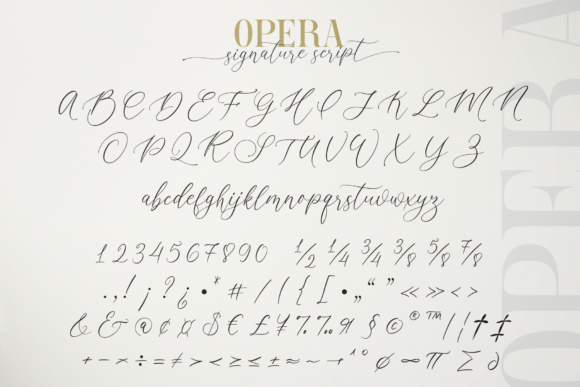 OPERA
signature script
A B C D E F G H I J K L M N
O P Q R S T U V W X Y Z
abcdefghijklmnopqrstuvwxyz
1 2 3 4 5 6 7 8 9 0 ½ ¼ ¾ ⅜ ⅝ ⅞
. , ! ¡ ? ¿ • * # / | ( { [ • „ “ ” « » < >
& @ ¢ ¤ $ € £ ¥ § © ® ™ / ¦ † ‡
+ − × ÷ = ≠ > < ≥ ≤ ± ≈ ~ ∞ ∏ ∑ ∂
OPERA